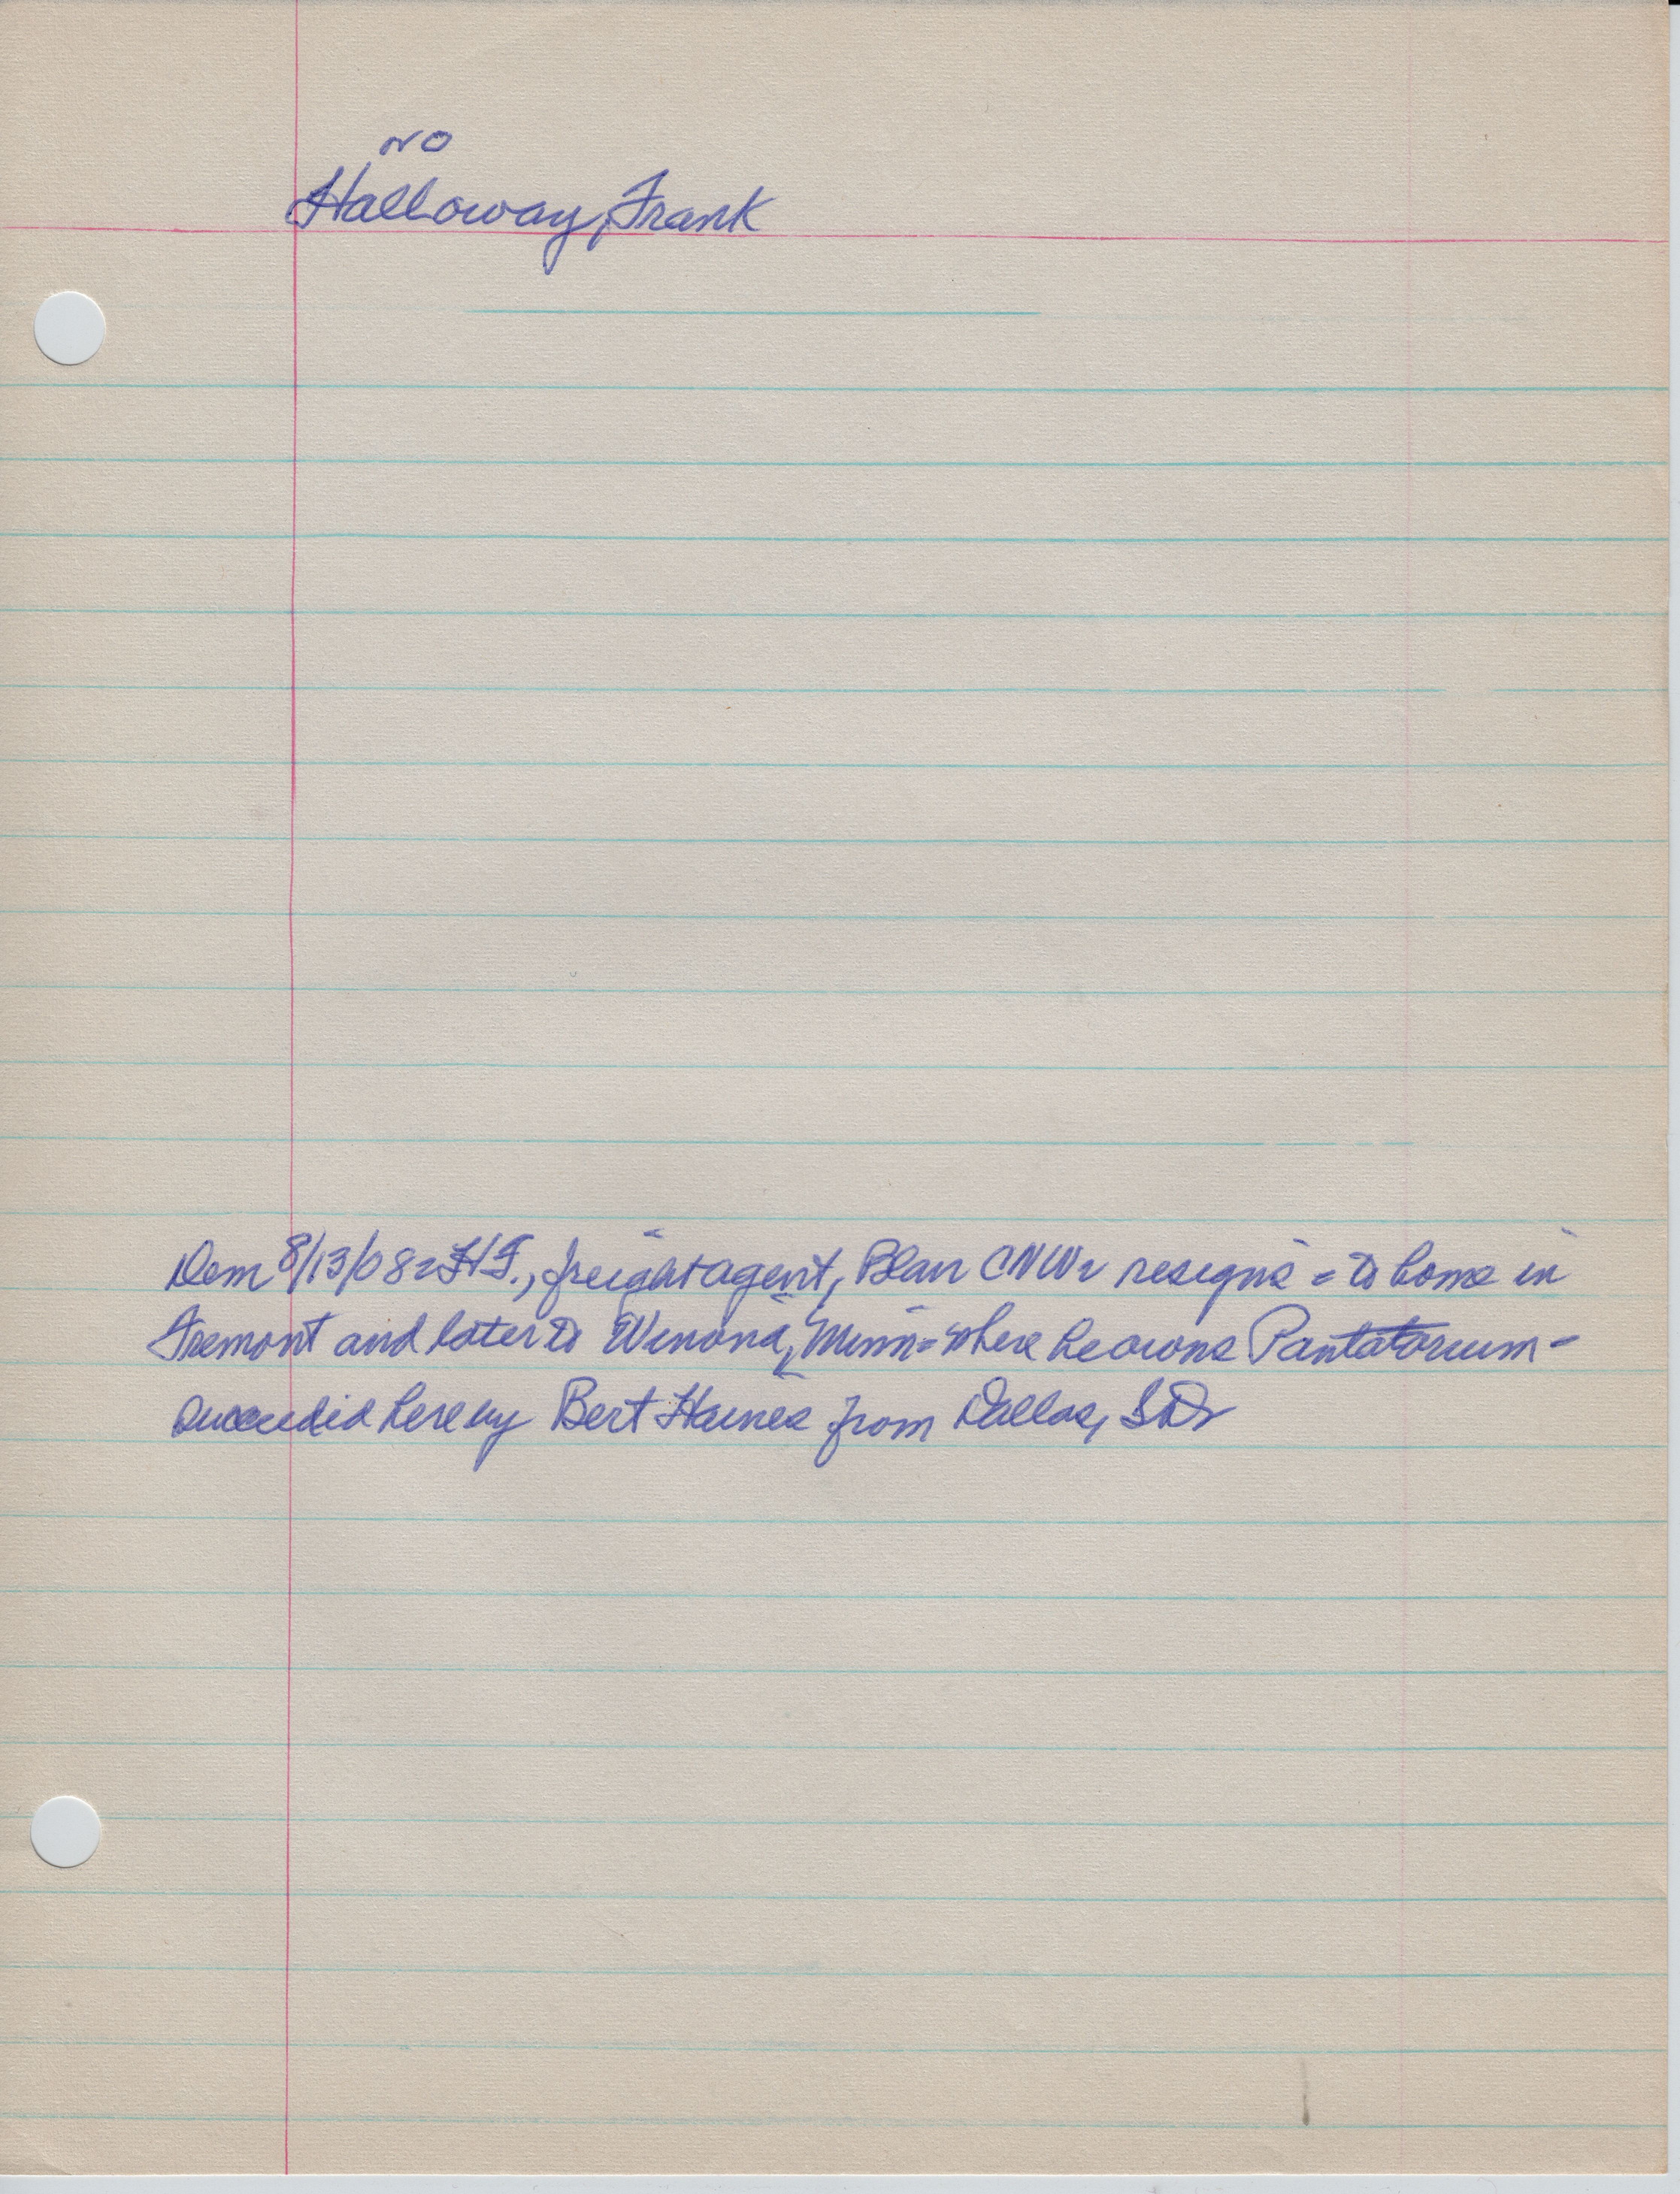 or o
Halloway, Frank
Dem 8/13/08 = FH., freight agent, Blair CNW resigns = to home in
Fremont and later to Winona, Minn = where he owns Pantatorium -
succeeded here by Bert Haines from Dallas, SD